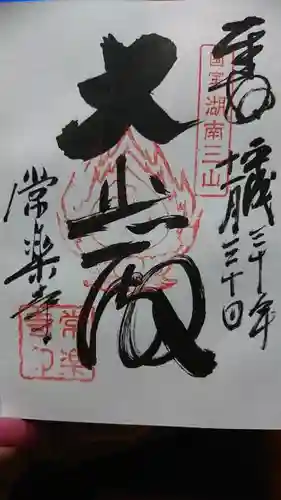 奉拝
平成三十年
十一月三十日
国宝 湖南三山
大悲
常楽寺
常楽寺印